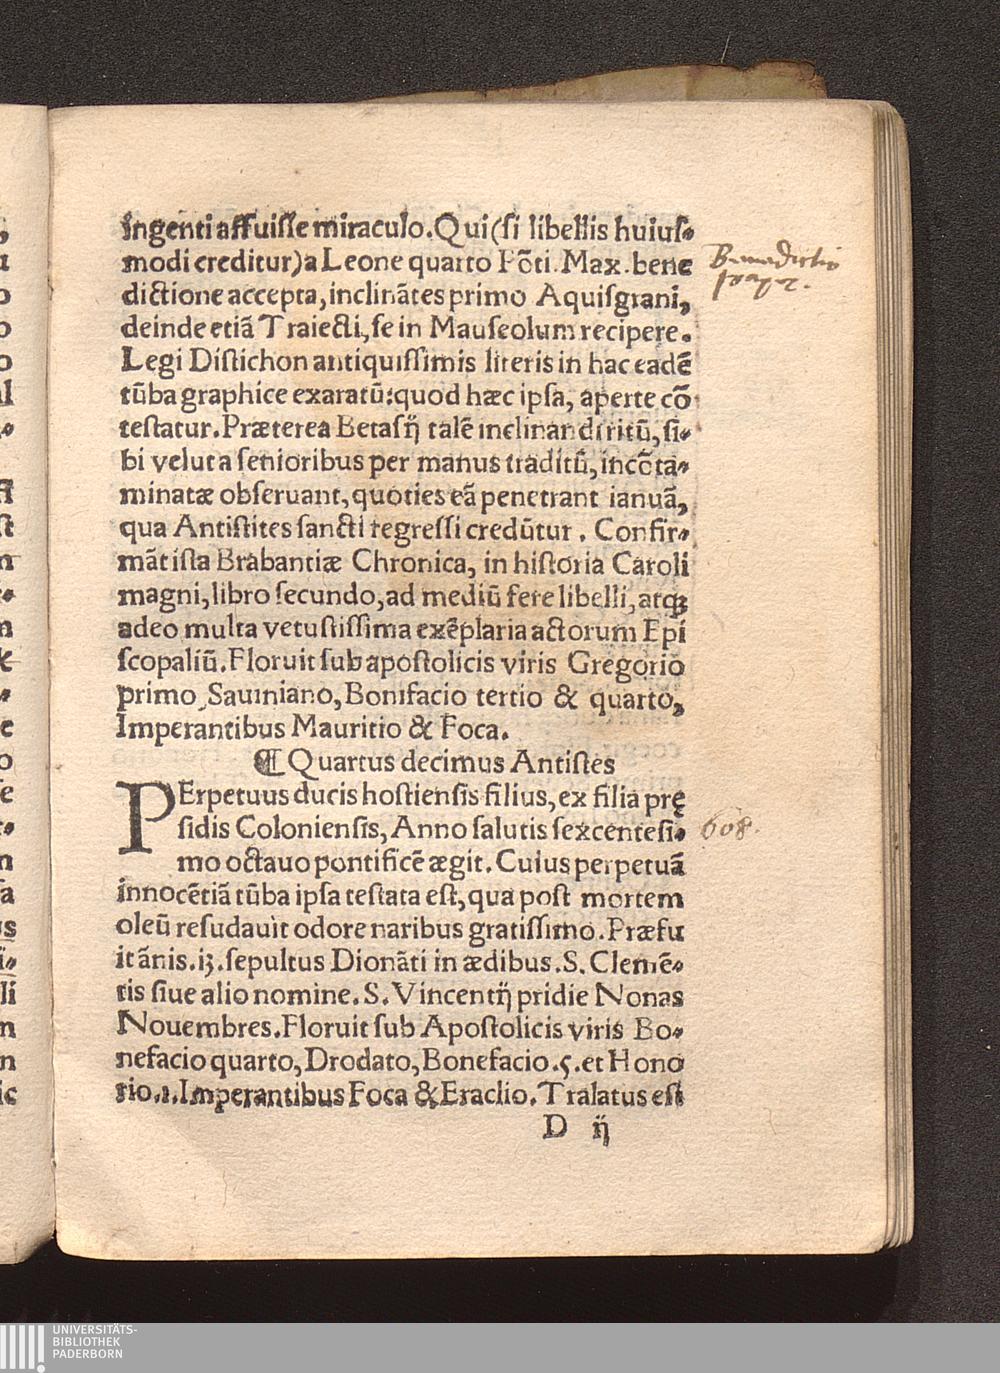 ingenti affuisse miraculo. Qui (si libellis huius⸗
modi creditur) a Leone quarto Põti. Max. bene
dictione accepta, inclinãtes primo Aquisgrani,
deinde etiã Traiecti, se in Mausoleum recipere.
Legi Distichon antiquissimis literis in hac eadẽ
tũba graphice exaratũ: quod hæc ipsa, aperte cõ
testatur. Præterea Betasij talẽ inclinandi ritũ, si⸗
bi velut a senioribus per manus traditũ, incõta⸗
minatæ obseruant, quoties eã penetrant ianuã,
qua Antistites sancti regressi credũtur. Confir⸗
mãt ista Brabantiæ Chronica, in historia Caroli
magni, libro secundo, ad mediũ fere libelli, atqȝ
adeo multa vetustissima exẽplaria actorum Epi
scopaliũ. Floruit sub apostolicis viris Gregorio
primo, Sauiniano, Bonifacio tertio & quarto,
Imperantibus Mauritio & Foca.
¶ Quartus decimus Antistes
PErpetuus ducis hostiensis filius, ex filia prę
sidis Coloniensis, Anno salutis sexcentesi⸗
mo octauo pontificẽ ægit. Cuius perpetuã
innocẽtiã tũba ipsa testata est, qua post mortem
oleũ resudauit odore naribus gratissimo. Præfu
it ãnis. i3. sepultus Dionãti in ædibus. S. Clemẽ⸗
tis siue alio nomine. S. Vincentij pridie Nonas
Nouembres. Floruit sub Apostolicis viris Bo⸗
nefacio quarto, Drodato, Bonefacio. 5. et Hono
rio. 1. Imperantibus Foca & Eraclio. Tralatus est
D ij
Benedictio
608.
UNIVERSITÄTS-
BIBLIOTHEK
PADERBORN